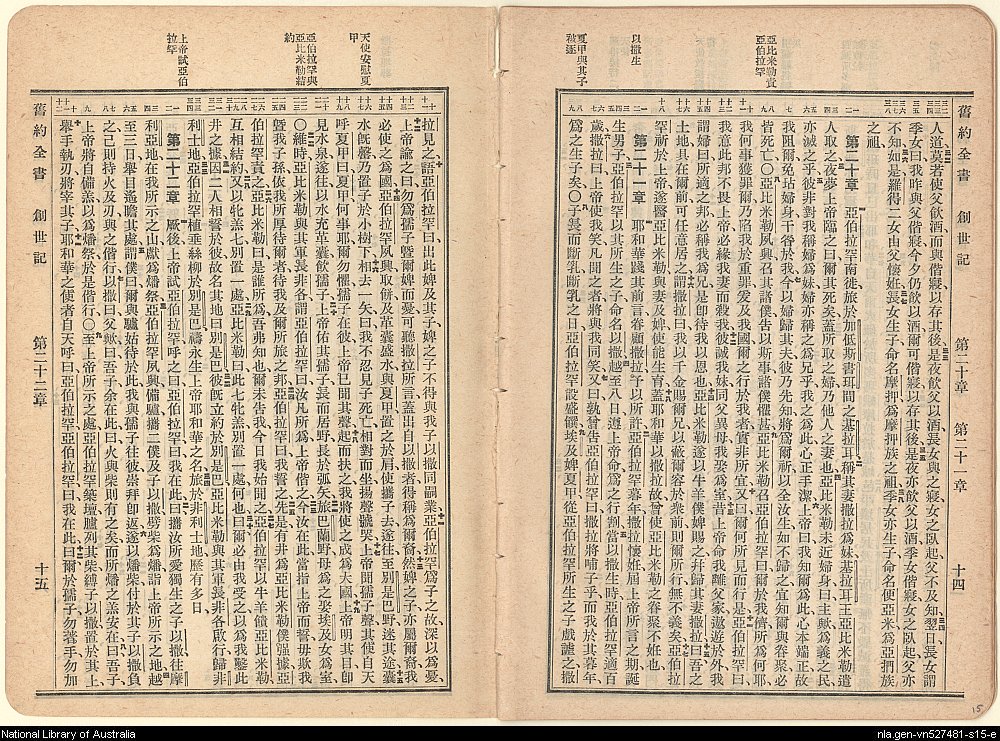 舊約全書 創世記 第二十章 第二十一章 十四
人道莫若使父飲酒而與偕寢以存其後是夜飲父以酒長女與之寢女之臥起父不及知翌日長女謂
季女曰我昨與父偕寢今夕仍飲以酒爾可偕寢以存其後是夜亦飲父以酒季女偕寢女之臥起父亦
不知如是羅得二女由父懷妊長女生子命名摩押爲摩押族之祖季女亦生子命名便亞米爲亞捫族
之祖
第二十章 亞伯拉罕南徙旅於加低斯書珥間之基拉耳稱其妻撒拉爲妹基拉耳王亞比米勒遣
人取之夜夢上帝臨之曰爾其死矣蓋所取之婦乃他人之妻也亞比米勒未近婦身曰主歟爲義之民
亦滅之乎彼非對我稱婦爲妹婦亦稱之爲兄乎我之爲此心正手潔上帝曰我知爾爲此心本端正故
我阻爾免玷婦身干咎於我今以婦歸其夫彼乃先知將爲爾祈以全汝生如不歸之宜知爾與眷聚必
皆死亡〇亞比米勒夙興召其諸僕告以斯事諸僕懼甚亞比米勒召亞伯拉罕曰爾於我儕所爲何耶
我何事獲罪爾乃陷我於重罪爰及我國爾之行於我者實非所宜又曰爾何所見而行是亞伯拉罕曰
我意此邦不畏上帝必緣我妻而殺我彼誠我妹同父異母我娶爲室昔上帝命我離父家遨遊於外我
謂婦曰所適之邦必稱我爲兄是卽待我以恩也亞比米勒遂以牛羊僕婢賜之幷歸其妻撒拉曰吾之
土地具在爾前可任意居之謂撒拉曰我以千金賜爾兄以蔽爾容於衆前則爾所行無不義矣亞伯拉
罕祈於上帝遂醫亞比米勒與妻及婢使能生育蓋耶和華以撒拉故曾使亞比米勒之眷聚不妊也
第二十一章 耶和華踐其前言眷顧撒拉予以所許亞伯拉罕暮年撒拉懷妊屆上帝所言之期誕
生男子亞伯拉罕以其所生之子命名以撒越至八日遵上帝命爲之行割當以撒生時亞伯拉罕百
歲撒拉曰上帝使我笑凡聞之者將與我同笑又曰孰嘗告亞伯拉罕曰撒拉將哺子乎而我於其暮年
爲之生子矣〇子長而斷乳斷乳之日亞伯拉罕設盛饌埃及婢夏甲從亞伯拉罕所生之子戲謔之撒
亞比米勒責亞伯拉罕
以撒生
夏甲與其子被逐
拉見之語亞伯拉罕曰出此婢及其子婢之子不得與我子以撒同嗣業亞伯拉罕爲子之故深以爲憂
上帝諭之曰勿爲孺子曁爾婢而憂可聽撒拉所言蓋出自以撒者得稱爲爾裔然婢之子亦屬爾裔我
必使之成爲國亞伯拉罕夙興取餅及革囊盛水予夏甲置之於肩使攜子去遂往至別是巴野迷其途囊
水旣罄乃置子於小樹下相去一矢曰我不忍見子死亡相對而坐揚聲號哭上帝聞孺子聲其使自天
呼夏甲曰夏甲何事耶爾勿懼孺子在彼上帝已聞其聲起而扶之我將使之成爲大國上帝明其目卽
見水泉遂往以水充革囊飲孺子上帝佑其孺子長而居野長於弧矢旅巴蘭野母爲之娶埃及女爲室
〇維時亞比米勒與其軍長非各謂亞伯拉罕曰汝凡所爲上帝偕之今汝在此當指上帝而誓毋欺我
曁我子孫依我所厚待爾者待我及爾所旅之邦亞伯拉罕曰我誓之先是有井爲亞比米勒僕強據亞
伯拉罕責之亞比米勒曰是誰所爲吾弗知也爾未告我今日我始聞之亞伯拉罕以牛羊餽亞比米勒
互相結約又以牝羔七別置一處亞比米勒曰此七牝羔別置一處何也曰爾必由我受之以爲我鑿此
井之據因二人相誓於彼故名其地曰別是巴彼旣立約於別是巴亞比米勒與其軍長非各啟行歸非
利士地亞伯拉罕植垂絲柳於別是巴禱永生上帝耶和華之名旅於非利士地歷有多日
第二十二章 厥後上帝試亞伯拉罕呼之曰亞伯拉罕曰我在此曰攜汝所愛獨生之子以撒往摩
利亞地在我所示之山獻爲燔祭亞伯拉罕夙興備驢攜二僕及子以撒劈柴爲燔詣上帝所示之地越
至三日舉目遙瞻其處謂僕曰爾與驢姑待於此我與孺子往彼崇拜卽返遂以燔柴付於其子以撒負
之己則持火及刃與之偕行以撒曰父歟曰吾子余在此曰火與柴則有之矣而所燔之羔安在曰吾子
上帝將自備羔以爲燔祭於是偕行〇至上帝所示之處亞伯拉罕築壇臚列其柴縛子以撒置於其上
舉手執刃將宰其子耶和華之使者自天呼曰亞伯拉罕亞伯拉罕曰我在此曰爾於孺子勿著手勿加
天使安慰夏甲
亞伯拉罕與亞比米勒結約
上帝試亞伯拉罕
舊約全書 創世記 第二十二章 十五
15
National Library of Australia
nla.gen-vn527481-s15-e